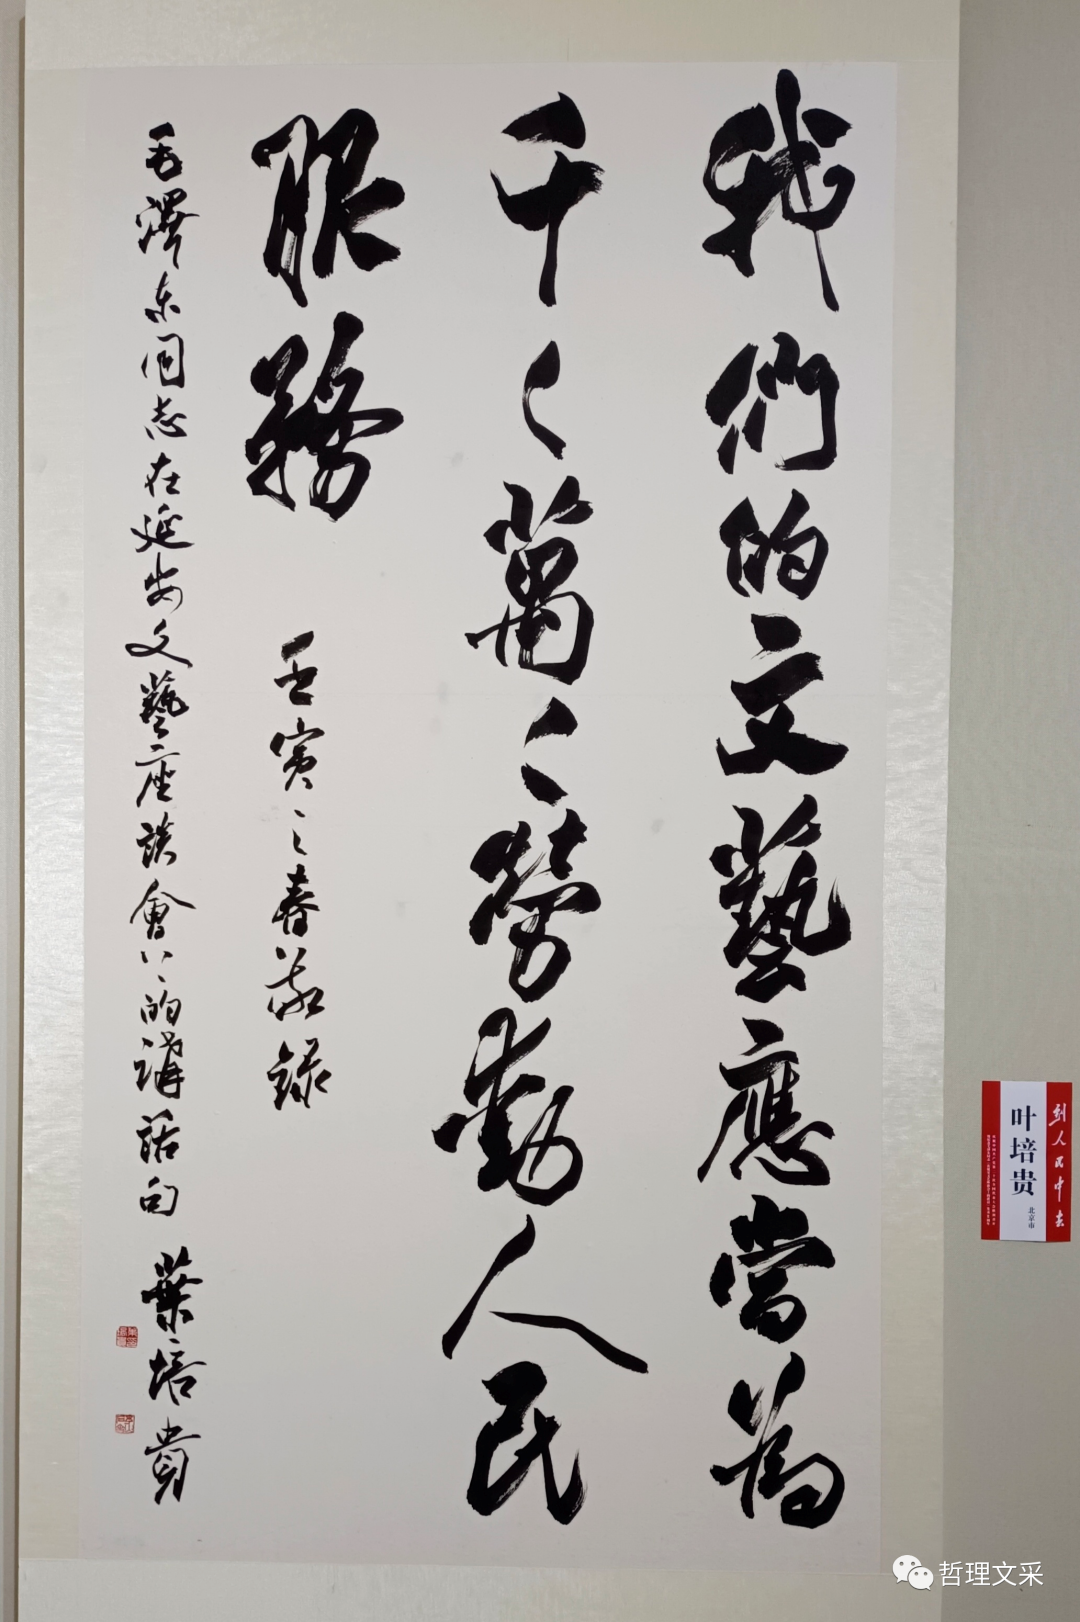 我們的文藝應當為
千〻萬〻勞動人民
服務
壬寅之春敬錄
毛澤东同志在延安文藝座談會上的講話句
葉培貴
到人民中去
叶培贵
北京市
哲理文采